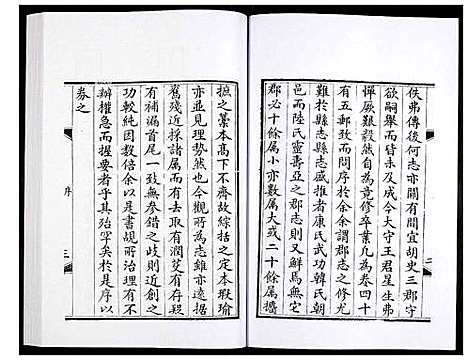 佚弗傳後何志亦闕有間宜胡史三郡守
欲嗣舉而皆未及成今大守王君星生弗
憚厥艱毅然自為竟修卒業凡為卷四十
有五郵致而問序於余余謂郡志之修尤
難於縣志縣志盛推者康氏武功韓氏朝
邑而近陸氏靈壽亞之郡志則又鮮焉無它
郡必十餘屬小亦數屬大或二十餘屬攟
摭之纂本高下不齊故綜括之定本瑕瑜
亦並見理勢然也今觀所為志雖亦遠據
舊殘近採諸屬而有去取有潤芟有存殿
有補漏首尾一一無參錯之歧則近創之
功較純因數倍余以是書覘所治理有不
辦權急而握要者乎其殆罕矣於是序以
券之
序
二
三